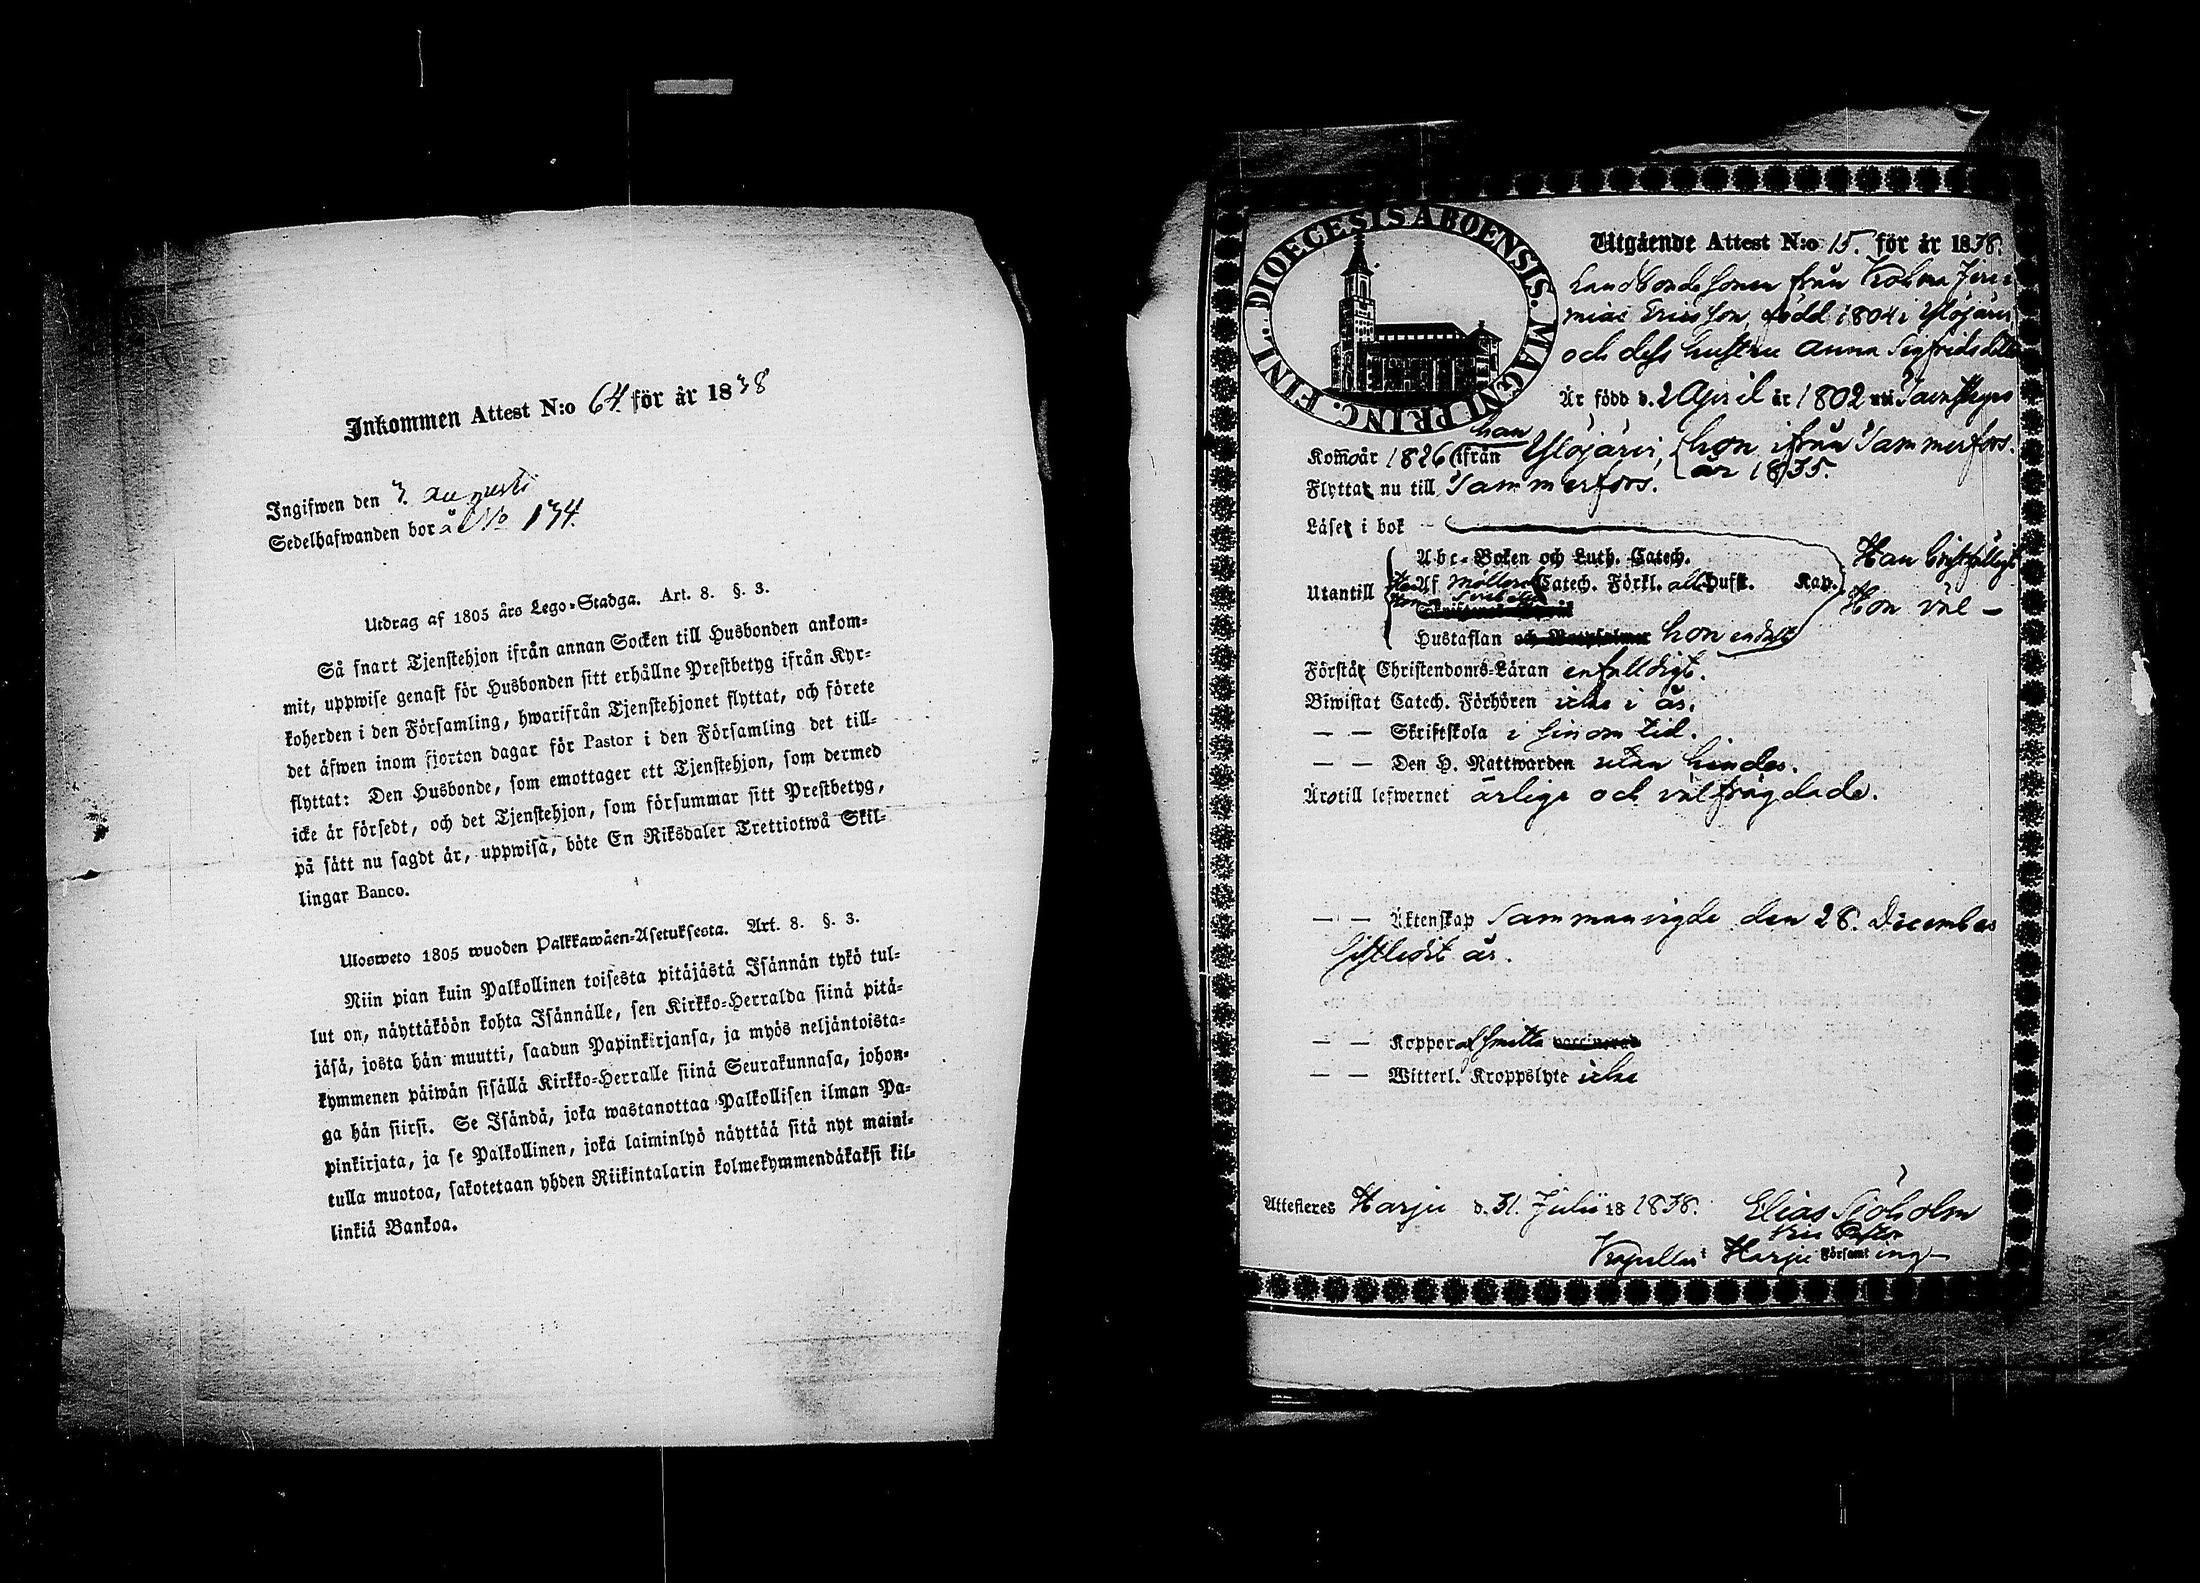 Inkommen Attest N:o 64. för år 1838
Ingifwen den 3. augusti
Sedelhafwanden bor å No 134.
Utdrag af 1805 års Lego-Stadga. Art. 8. §. 3.
Så snart Tjenstehjon ifrån annan Socken till Husbonden ankom-
mit, uppwise genast för Husbonden sitt erhållne Prestbetyg ifrån Kyr-
koherden i den Församling, hwarifrån Tjenstehjonet flyttat, och förete
det äfwen inom fjorton dagar för Pastor i den Församling det till-
flyttat: Den Husbonde, som emottager ett Tjenstehjon, som dermed
icke är försedt, och det Tjenstehjon, som försummar sitt Prestbetyg,
på sätt nu sagdt är, uppwisa, böte En Riksdaler Trettiotwå Skil-
lingar Banco.
Ulosweto 1805 wuoden Palkkawäen-Asetuksesta. Art. 8. §. 3.
Niin pian kuin Palkollinen toisesta pitäjästä Isännän tykö tul-
lut on, näyttäköön kohta Isännälle, sen Kirkko-Herralda siinä pitä-
jäsä, josta hän muutti, saadun Papinkirjansa, ja myös neljäntoista-
kymmenen päiwän sisällä Kirkko-Herralle siinä Seurakunnasa, johon-
ga hän siirsi. Se Isändä, joka wastanottaa Palkollisen ilman Pa-
pinkirjata, ja se Palkollinen, joka laiminlyö näyttää sitä nyt maini-
tulla muotoa, sakotetaan yhden Riikintalarin kolmekymmendäkaksi kil-
linkiä Bankoa.
DIOECESIS ABOENSIS. MAGNI PRINC. FINL.
Utgående Attest N:o 15. för år 1838.
Landbondesonen från Kolma Jere
mias Ericsson, född 1804 i Ylöjärvi
och dess hustru Anna Sigfridsdotter
Är född d. 2 April år 1802 i
han
Kommo år 1826 ifrån Ylöjärvi, hon ifrån Tammerfors.
år 1835.
Flyttat nu till Tammerfors.
Läser i bok
Abc-Boken och Luth. Catech.
Han
Utantill Af Möllers Catech. Förkl. all Hufst. Kap.
Hon väl -
Hustaflan och hon endast
Förstår Christendoms-Läran enfalldigt.
Biwistat Catech. Förhören icke i år.
— — Skriftskola i sinom tid.
— — Den H. Nattwarden utan hinder.
Äro till lefwernet ärlige och välfrägdade.
— — Äktenskap Sammanvigde den 28. December
sistledit år.
— — Koppor
— — Witterl. Kroppslyte icke
Attesteres Harju d. 31. Julii 18 1838. Elias Sjöholm
Vice Pastor
Kapellan i Harju Församling